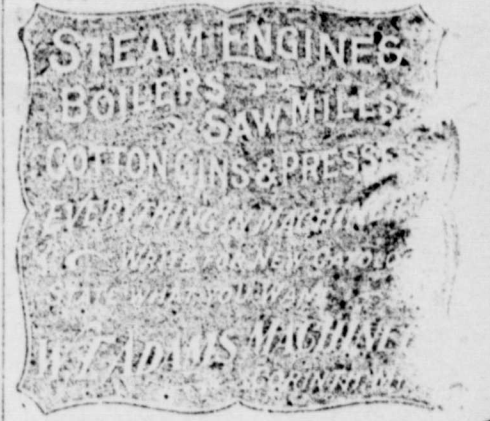 STEAM ENGINES
BOILERS
SAW MILLS
COTTON GINS & PRESSES
EVERYTHING IN MACHINERY
WRITE FOR NEW CATOLOG
STATE WHAT YOU WANT
W. T. ADAMS MACHINE
CORINTH